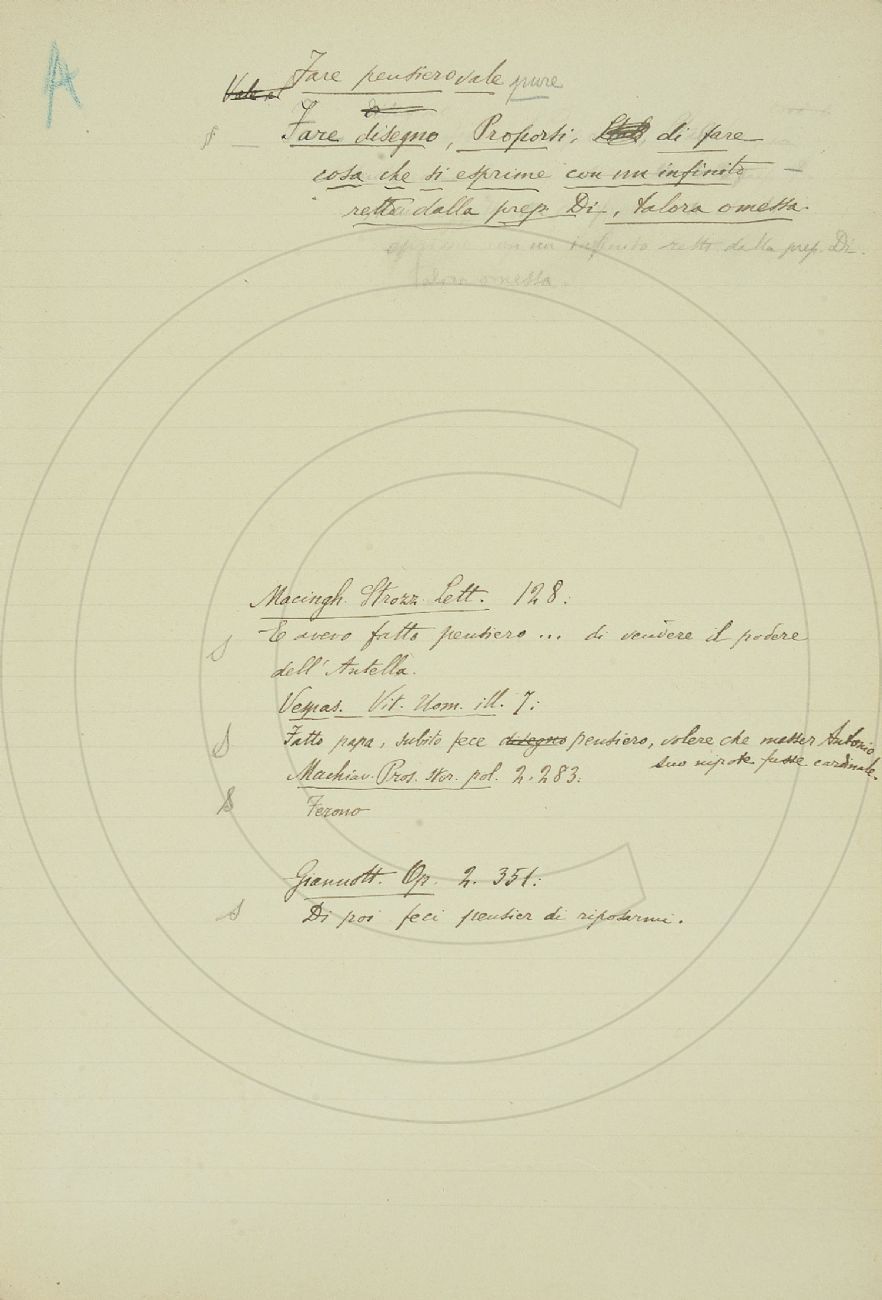 A
Fare pensiero vale pure
Vale el
Fare disegno, Proporsi, di fare
cosa che si esprime con un infinito —
retto dalla prep. Di, talora omessa.
esprime con un infinito retto dalla prep. Di.
talora omessa.
Macingh. Strozz. Lett. 128:
S E avevo fatto pensiero ... di vendere il podere
dell'Antella.
Vespas. Vit. Uom. ill. 7:
S Fatto papa, subito fece disegno pensiero, volere che messer Antonio
suo nipote fusse cardinale.
Machiav. Pros. stor. pol. 2. 283:
S Ferono
Giannott. Op. 2. 351:
S Di poi feci pensier di riposarmi.